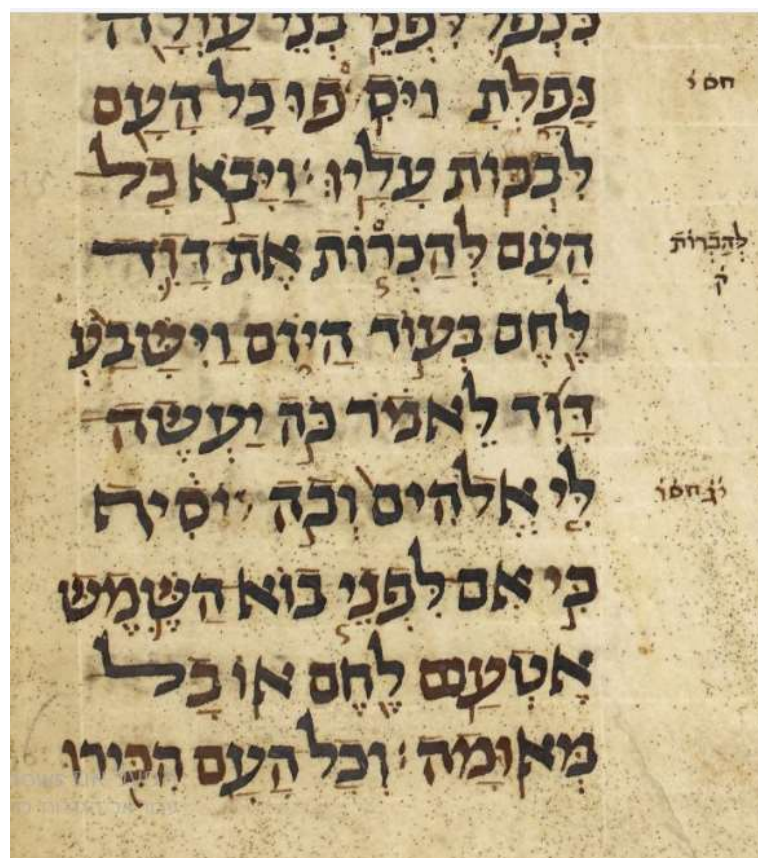 כִּנְפֹל לִפְנֵי בְנֵי עַוְלָה
נָפָלְתָּ וַיֹּסִפוּ כָל הָעָם
לִבְכּוֹת עָלָיו׃ וַיָּבֹא כָל
הָעָם לְהַכְרוֹת אֶת דָּוִד
לְהַבְרוֹת
ק֗
לֶחֶם בְּעוֹד הַיּוֹם וַיִּשָּׁבַע
דָּוִד לֵאמֹר כֹּה יַעֲשֶׂה
לִּי אֱלֹהִים וְכֹה יֹסִיף
כִּי אִם לִפְנֵי בוֹא הַשֶּׁמֶשׁ
אֶטְעַם לֶחֶם אוֹ כָל
מְאוּמָה׃ וְכָל הָעָם הִכִּירוּ